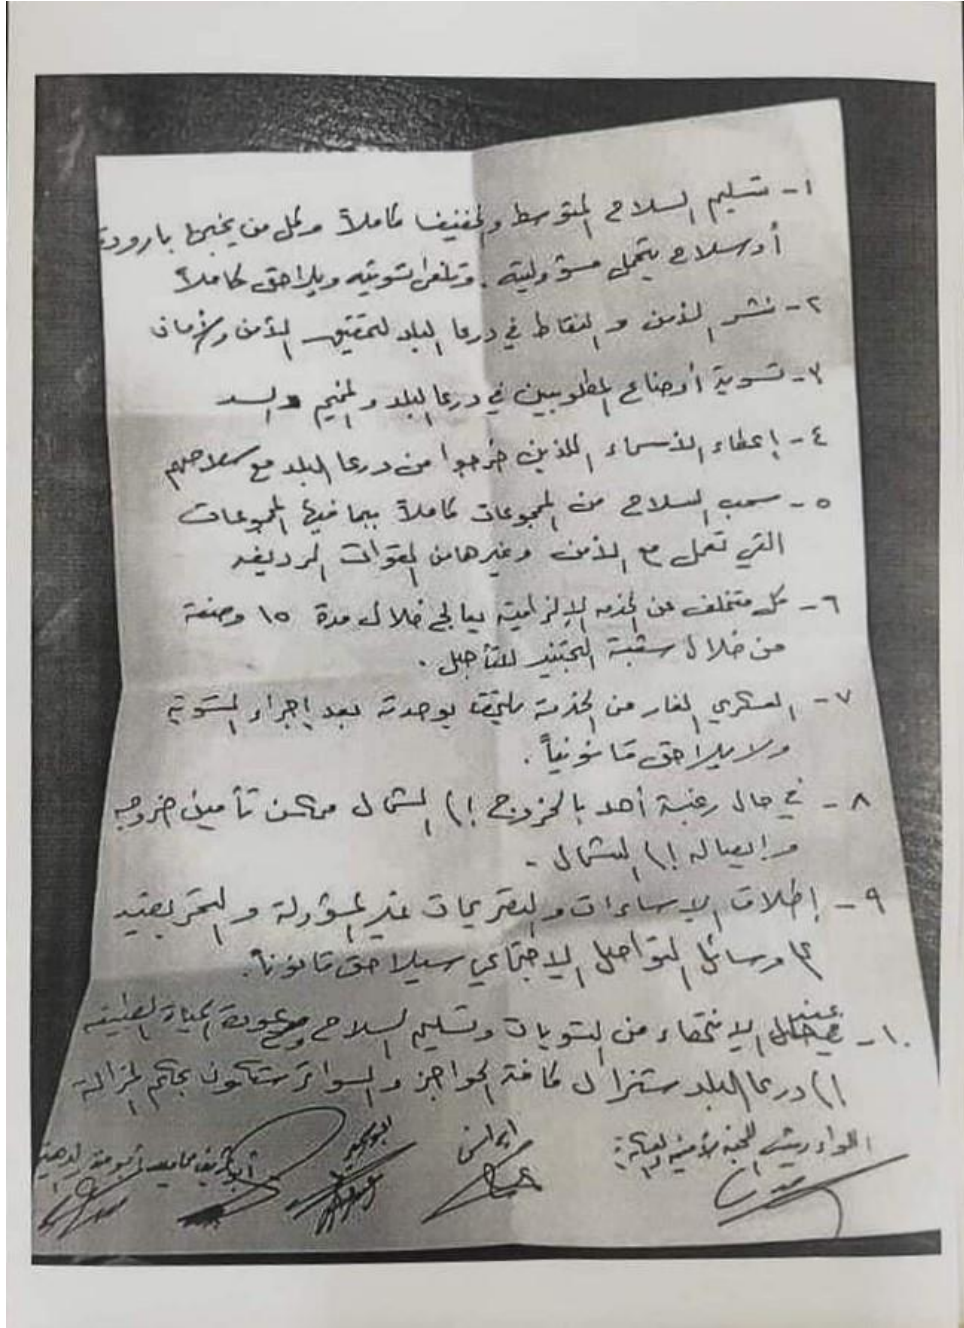 ١- تسليم السلاح المتوسط والخفيف كاملاً وكل من يخبئ بارودة
أو سلاح يتحمل مسؤوليته. وتلغى تسويته ويلاحق كاملاً
٢- نشر الأمن والنقاط في درعا البلد لتحقيق الأمن والأمان
٣- تسوية أوضاع المطلوبين في درعا البلد والمخيم والسد
٤- إعطاء الأسماء اللذين خرجوا من درعا البلد مع سلاحهم
٥- سحب السلاح من المجموعات كاملاً بما فيها المجموعات
التي تعمل مع الأمن وغيرها من القوات الرديفه
٦- كل متخلف عن الخدمه الإلزامية يعالج خلال مدة ١٥ وضعه
من خلال شعبة التجنيد للتأجيل.
٧- العسكري الفار من الخدمة يلتحق بوحدته بعد إجراء التسوية
ولا يلاحق قانونياً.
٨- في حال رغبة أحد بالخروج إلى الشمال ممكن تأمين خروجه
وإيصاله إلى الشمال -
٩- إطلاق الإساءات والتصريحات غير المسؤولة والتحريضية
على وسائل التواصل الاجتماعي سيلاحق قانوناً.
١٠- عند الانتهاء من التسويات وتسليم السلاح وعودة الحياة الطبيعية
إلى درعا البلد ستزال كافة الحواجز والسواتر ستكون بحكم المزالة
اللواء رئيس اللجنة الأمنية والعسكرية